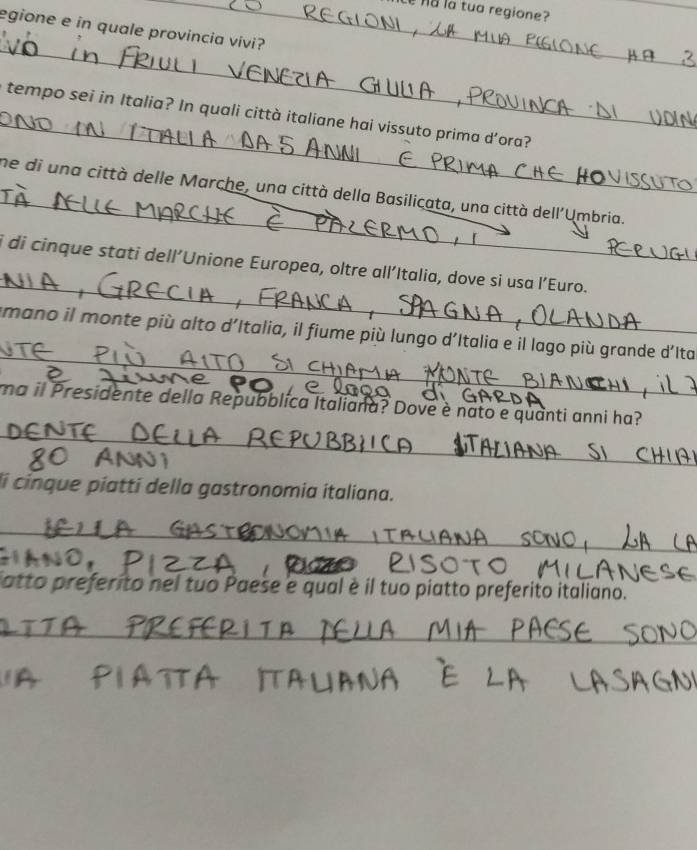 ha la tua regione?
REGIONI, LA MIA REGIONE HA 3
egione e in quale provincia vivi?
IVO in FRIULI VENEZIA GIULIA, PROVINCA DI UDINE
tempo sei in Italia? In quali città italiane hai vissuto prima d'ora?
ONO IN ITALIA DA 5 ANNI E PRIMA CHE HO VISSUTO
ne di una città delle Marche, una città della Basilicata, una città dell'Umbria.
TÀ DELLE MARCHE È PALERMO, PERUGI
i di cinque stati dell'Unione Europea, oltre all'Italia, dove si usa l'Euro.
NIA, GRECIA, FRANCA, SPAGNA, OLANDA
mano il monte più alto d'Italia, il fiume più lungo d'Italia e il lago più grande d'Ita
NTE PIÙ ALTO SI CHIAMA MONTE BIANCHI, iL
fiume PO, e lago di GARDA
ma il Presidente della Repubblica Italiana? Dove è nato e quanti anni ha?
DENTE DELLA REPUBBLICA ITALIANA SI CHIA
80 ANNI
i cinque piatti della gastronomia italiana.
DELLA GASTRONOMIA ITALIANA SONO, LA CA
GIANO, PIZZA, RISOTO MILANESE
iatto preferito nel tuo Paese e qual è il tuo piatto preferito italiano.
PREFERITA DELLA MIA PAESE SONO
PIATTA ITALIANA È LA LASAGN